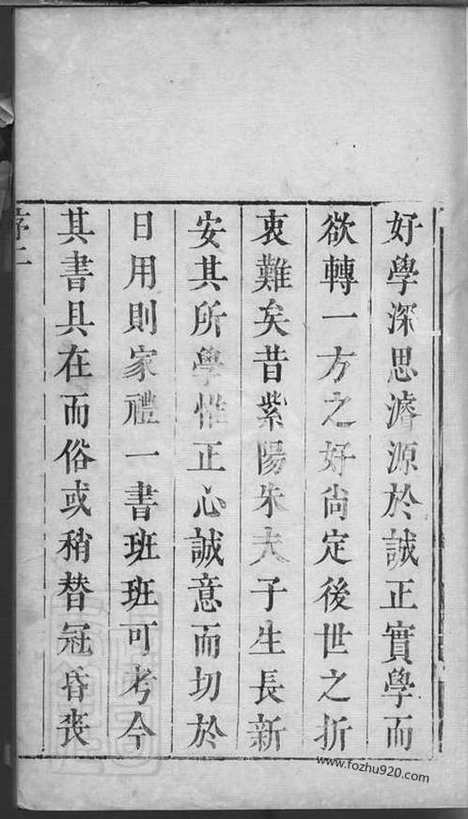 好學深思濬源於誠正實學而
欲轉一方之好尙定後世之折
衷難矣昔紫陽朱夫子生長新
安其所學惟正心誠意而切於
日用則家禮一書班班可考今
其書具在而俗或稍替冠昏喪
序二
www.fozhu920.com